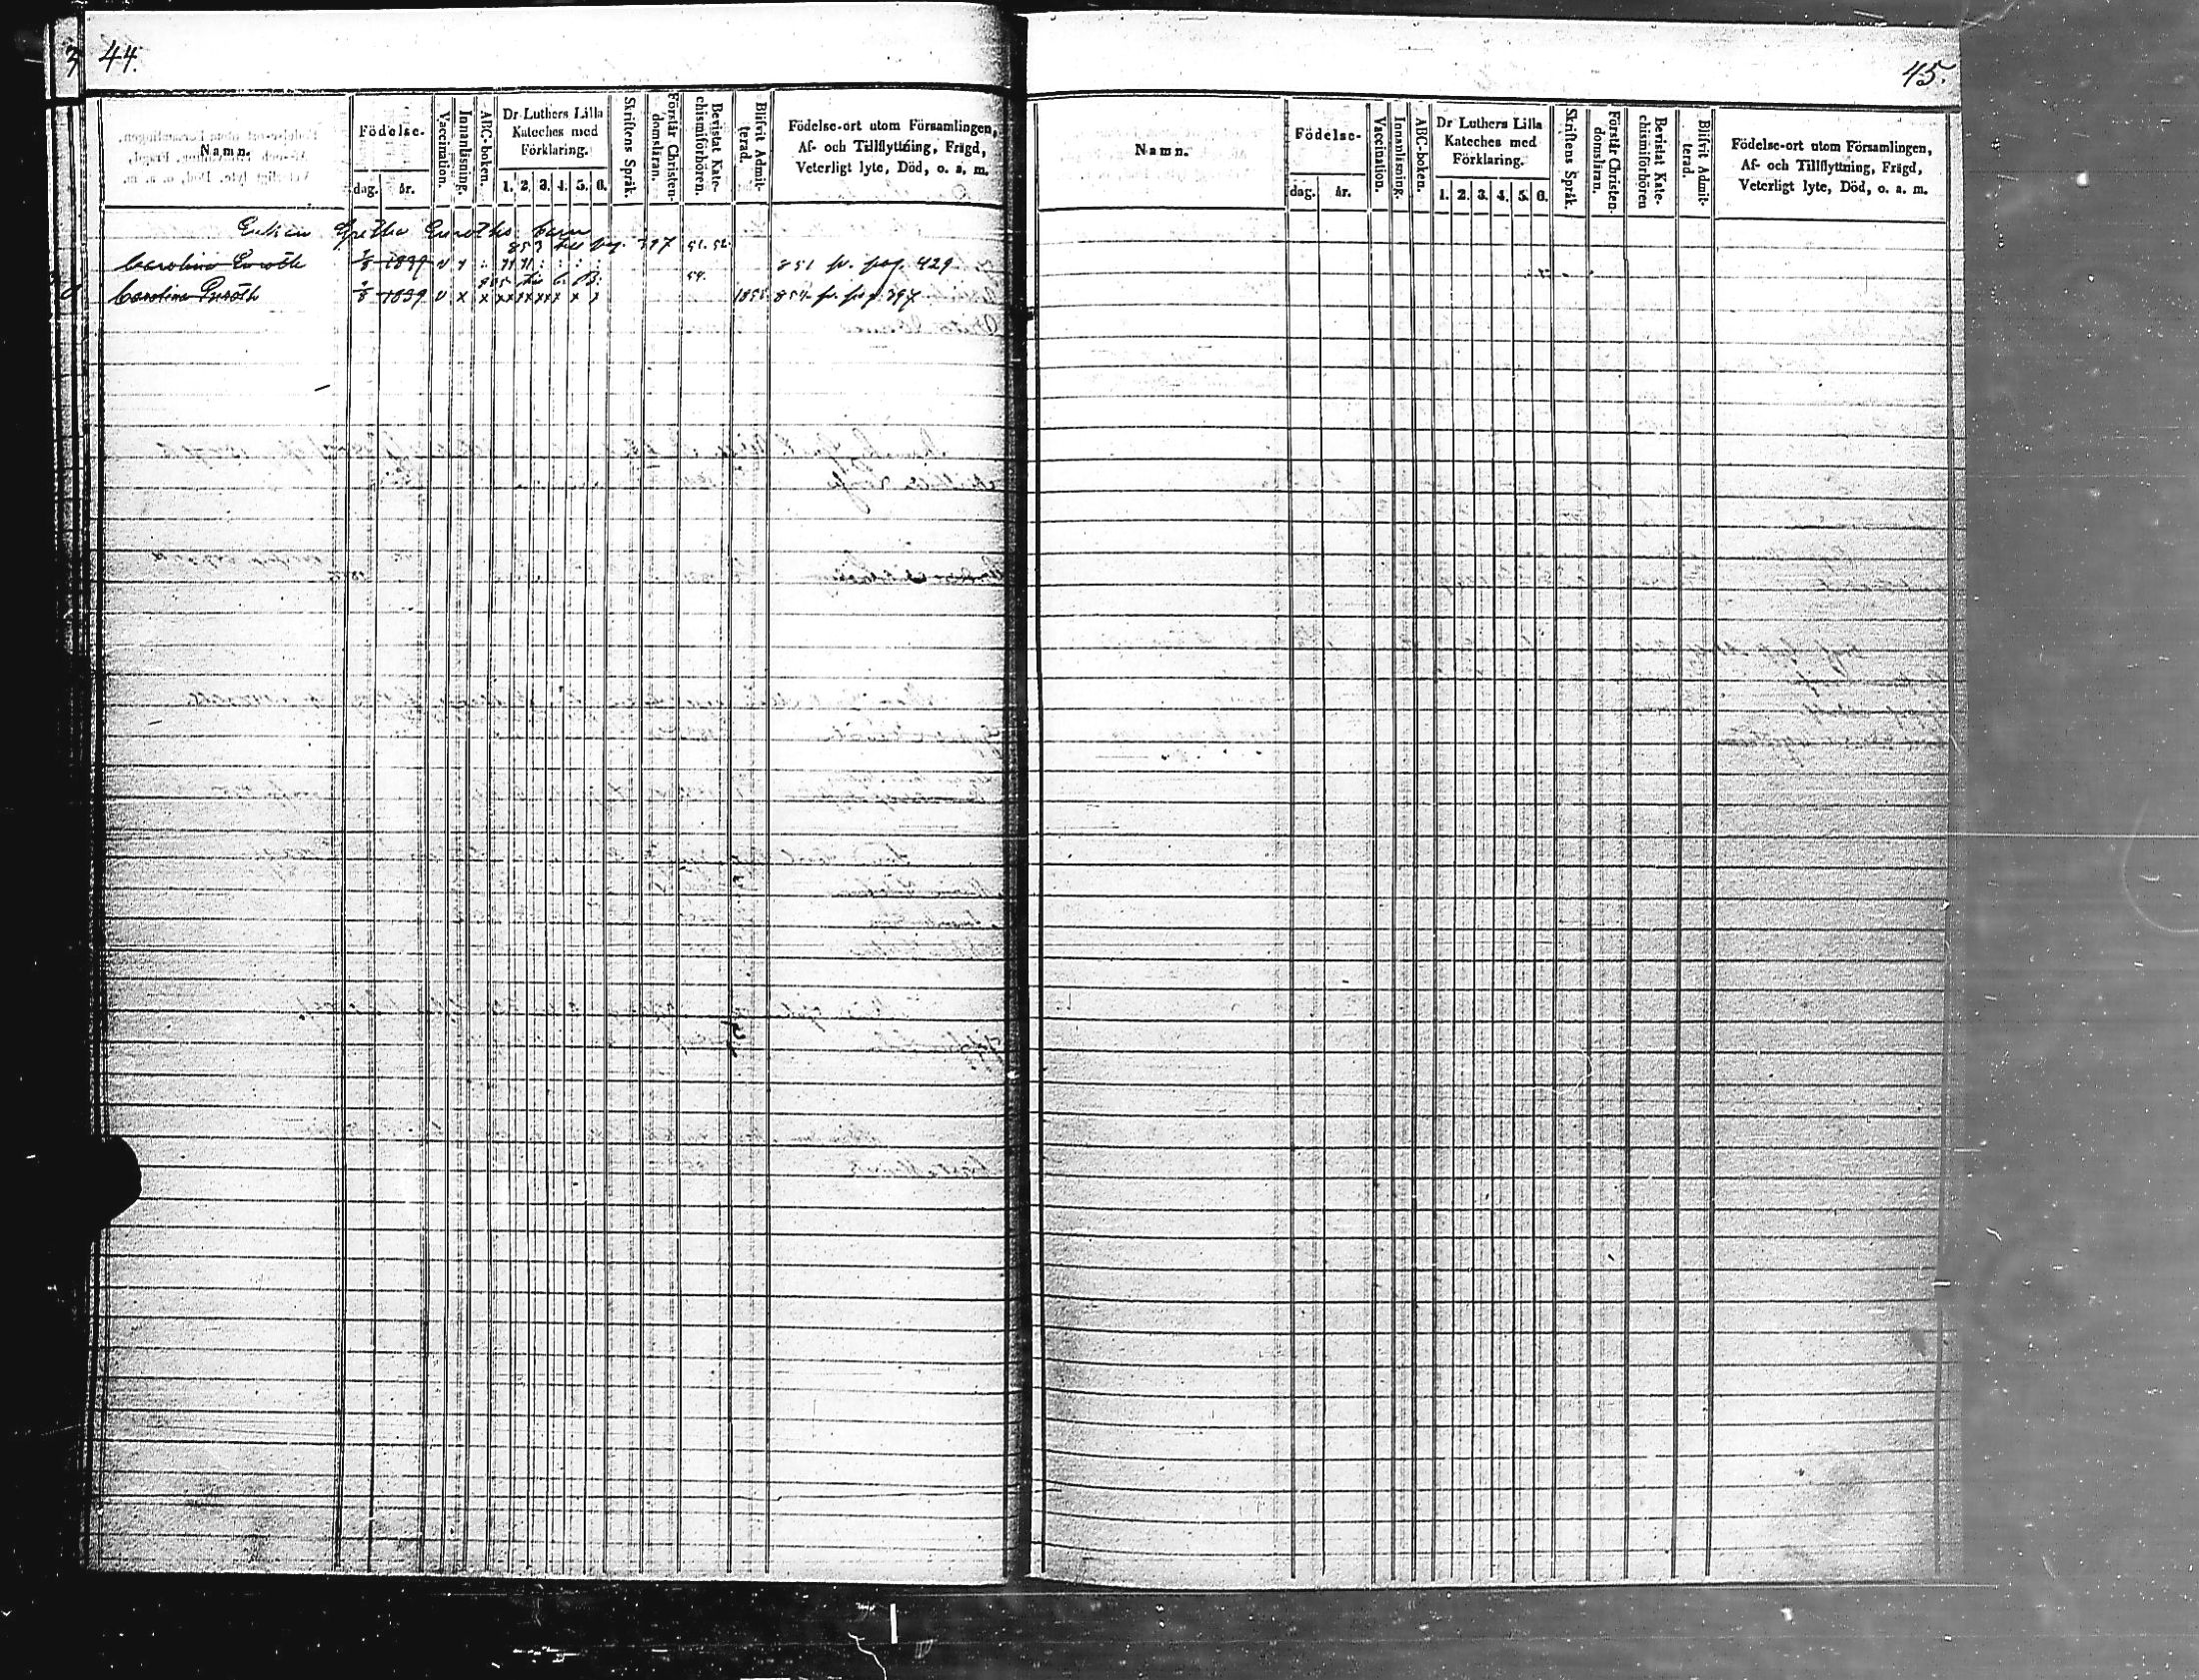 44.
Namn.
Födelse-
dag. år.
Vaccination.
Innanläsning.
ABC-boken.
Dr Luthers Lilla
Kateches med
Förklaring.
1. 2. 3. 4. 5. 6.
Skriftens Språk.
Förstår Christen-
domsläran.
Bevistat Kate-
chismiförhören.
Blifvit Admit-
terad.
Födelse-ort utom Församlingen,
Af- och Tillflyttning, Frägd,
Veterligt lyte, Död, o. a. m.
Enkan Gretha Enroths barn
853 pag. 397 51. 52.
Carolina Enroth 2/8 1839 v 851 fr. pag. 429
855 B. 54.
Carolina Enroth 2/8 1839 v x x x x x x x x x 1855 854 fr. pag. 397
45.
Namn.
Födelse-
dag. år.
Vaccination.
Innanläsning.
ABC-boken.
Dr Luthers Lilla
Kateches med
Förklaring.
1. 2. 3. 4. 5. 6.
Skriftens Språk.
Förstår Christen-
domsläran.
Bevistat Kate-
chismiförhören
Blifvit Admit-
terad.
Födelse-ort utom Församlingen,
Af- och Tillflyttning, Frägd,
Veterligt lyte, Död, o. a. m.